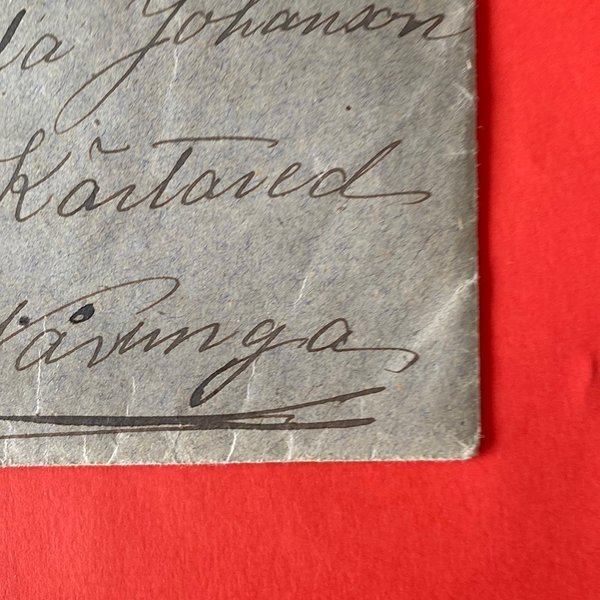 Johanson
Kärtared
Nårunga